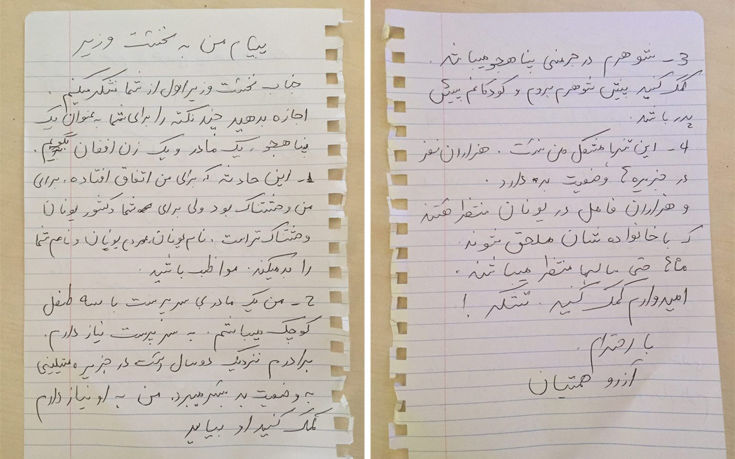 پیام من به نخست وزیر
جناب نخست وزیر اول از شما تشکر میکنیم.
اجازه بدهید چند نکته را برای شما به عنوان یک
پناهجو، یک مادر و یک زن افغان بگویم.
1- این حادثه که برای من اتفاق افتاده، برای
من وحشتناک بود ولی برای شما کشور یونان
وحشتناک تر است، نام یونان، مردم یونان و نام شما
را بد میکند. مواظب باشید.
2- من یک مادر بی سرپرست با سه طفل
کوچک میباشم. به سرپرست نیاز دارم.
برادرم نزدیک دوسال است در جزیره میتیلینی
به وضعیت بد بسر میبرد. من به او نیاز دارم
کمک کنید او بیاید
3- شوهرم در جرمنی پناهجو میباشد.
کمک کنید پیش شوهرم بروم و کودکانم پیش
پدر باشد.
4- این تنها مشکل من نیست. هزاران نفر
در جزیره ها وضعیت بد دارد.
و هزاران فامل در یونان منتظر هستند
که با خانواده شان ملحق شوند
ماه ها حتی سالها منتظر میباشند.
امیدوارم کمک کنید. تشکر!
با احترام.
آرزو همتیان